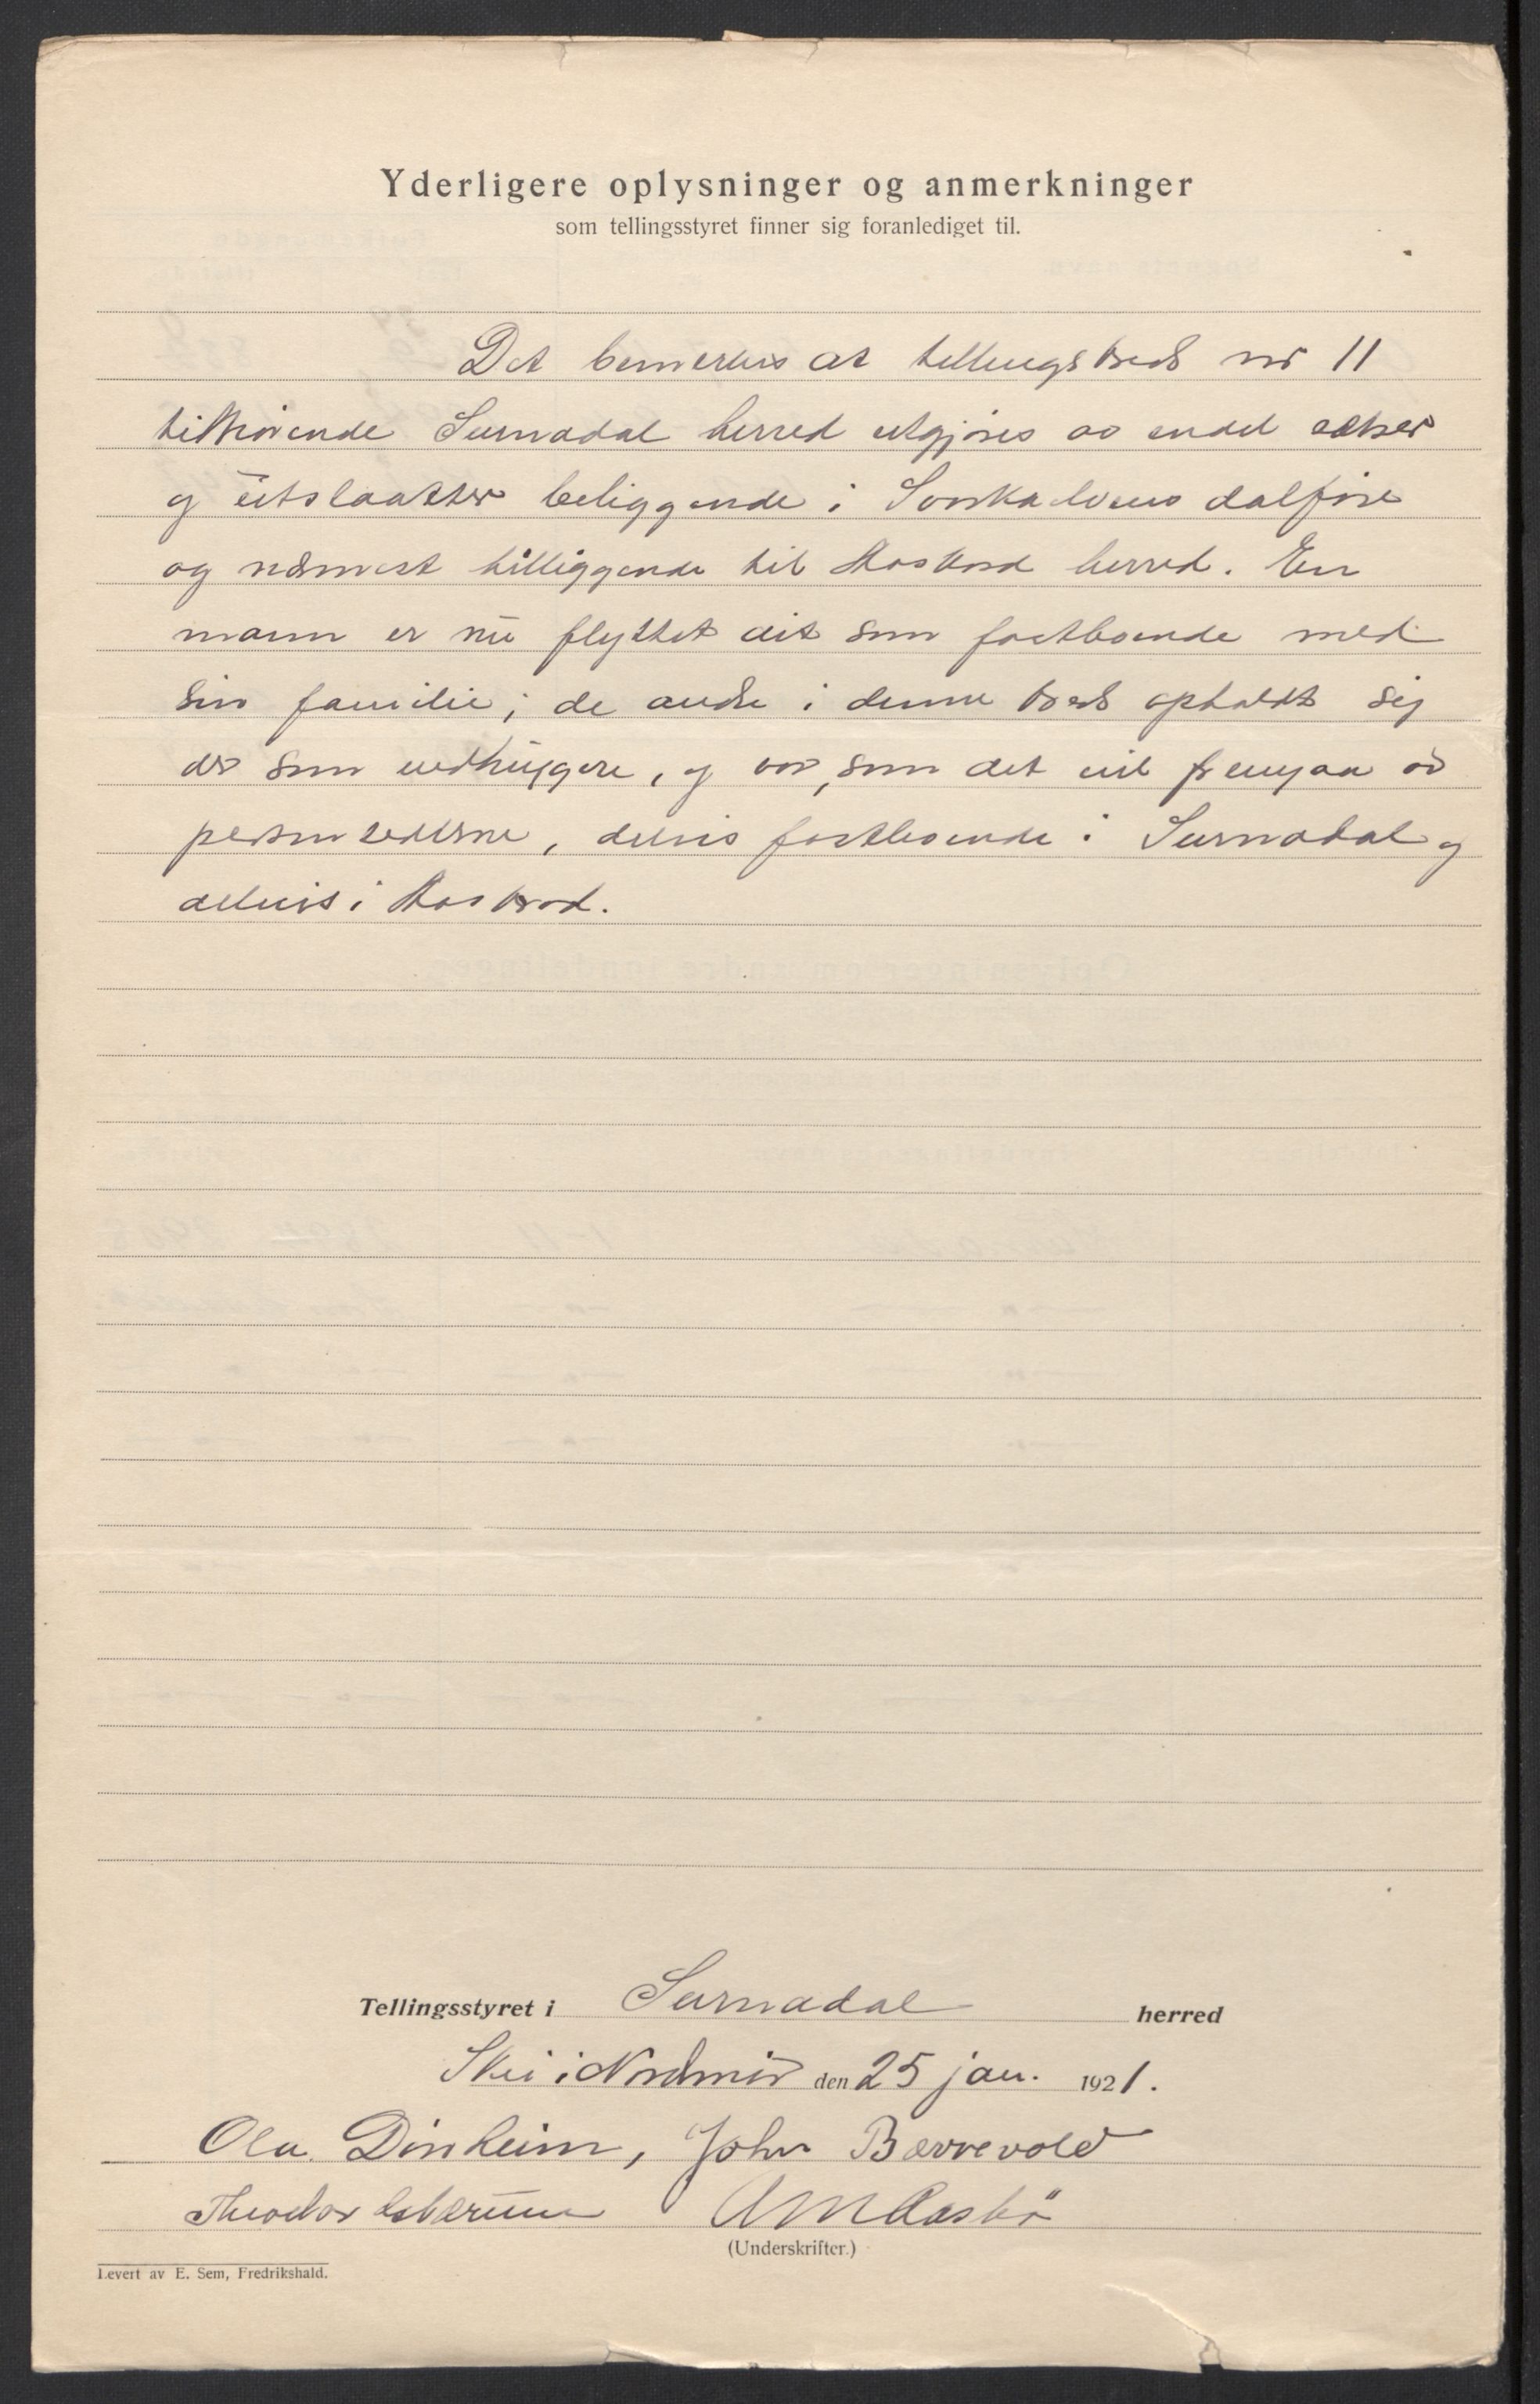 Yderligere oplysninger og anmerkninger
som tellingsstyret finner sig foranlediget til.
Det bemerkes at tellingskreds nr 11
tilhørende Surnadal herred utgjøres av endel sætrer
og utslaatter beliggende i Sonka elvens dalføre
og nærmest tilliggende til Aaskard herred. En
mann er nu flyttet dit som fastboende med
sin familie; de andre i denne kreds opholdt sig
der som vedhuggere, og var, som det vil fremgaa av
personsedlerne, delvis fastboende i Surnadal og
delvis i Aaskard.
Tellingsstyret i Surnadal herred
Skei i Nordmør den 25 jan. 1921.
Ola Dønheim, John Bævervold
Theodor
(Underskrifter.)
Levert av E. Sem, Fredrikshald.